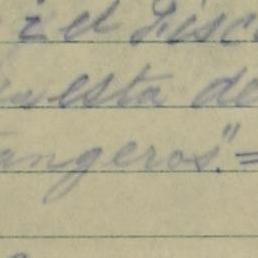 el disc
uesta de
angeros".=